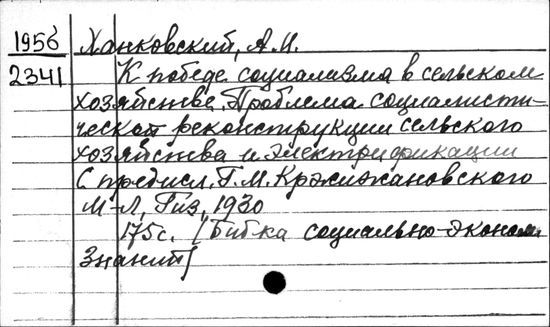 1956 Ханковский, А.И.
2341 К победе социализма в сельском
хозяйстве. Проблема социалисти-
ческой реконструкции сельского
хозяйства и электрификации
С предисл. Г.М. Кржижановского
М-Л, Гиз, 1930
175с. [Биб-ка социально-эконом.
знаний]